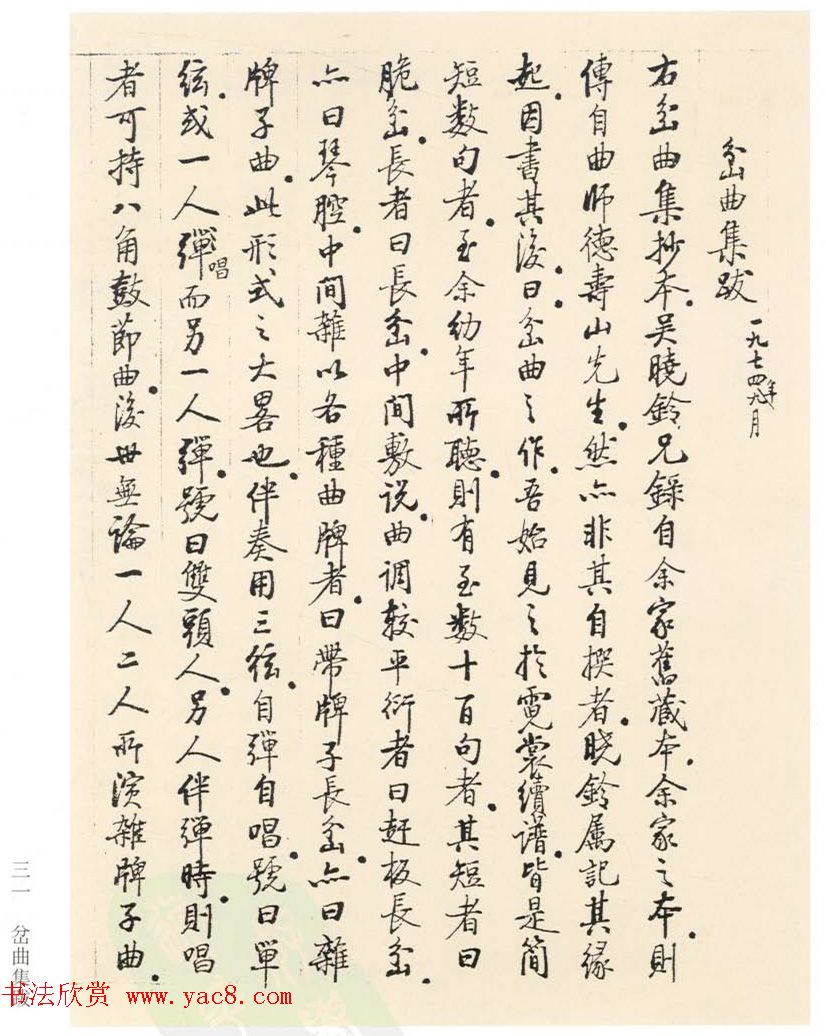 岔曲集跋 一九七四年九月
右岔曲集抄本。吴曉鈴兄錄自余家舊藏本。余家之本。則
傳自曲師德壽山先生。然亦非其自撰者。曉鈴属記其緣
起。因書其後。曰岔曲之作。吾始見之於霓裳續譜。皆是簡
短数句者。至余幼年所聽。則有至数十百句者。其短者曰
脆岔。長者曰長岔。中间敷说。曲调較平衍者曰赶板長岔。
亦曰琴腔。中间雜以各種曲牌者。曰帶牌子長岔。亦曰雜
牌子曲。此形式之大畧也。伴奏用三弦。自弹自唱。號曰單
弦。或一人彈唱而另一人彈。號曰雙頭人。另人伴弹時。則唱
者可持八角鼓節曲。後世無論一人二人所演雜牌子曲。
三一 岔曲集跋
书法欣赏 www.yac8.com